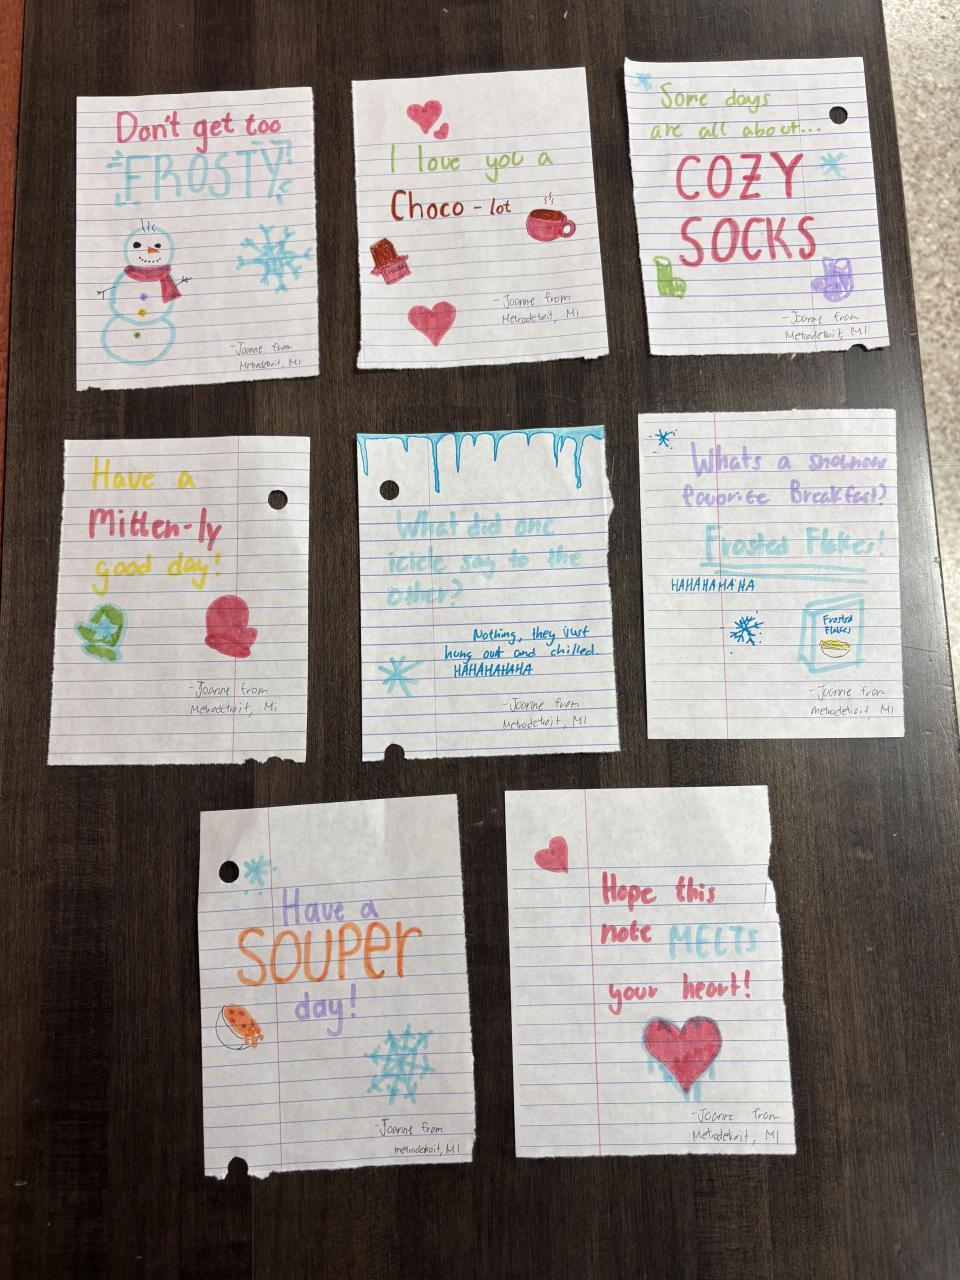 Don't get too
FROSTY!
-Joanne from
Metrodetroit, MI
I love you a
Choco-lot
-Joanne from
Metrodetroit, MI
Some days
are all about...
COZY
SOCKS
-Joanne from
Metrodetroit, MI
Have a
Mitten-ly
good day!
-Joanne from
Metrodetroit, Mi
What did one
icicle say to the
other?
Nothing, they just
hung out and chilled.
HAHAHAHAHA
-Joanne from
Metrodetroit, MI
Whats a
favorite Breakfast?
Frosted Flakes!
HAHAHAHAHA
Frosted
Flakes
-Joanne from
metrodetroit, MI
Have a
SOUPER
day!
-Joanne from
metrodetroit, MI
Hope this
note MELTS
your heart!
-Joanne from
Metrodetroit, MI